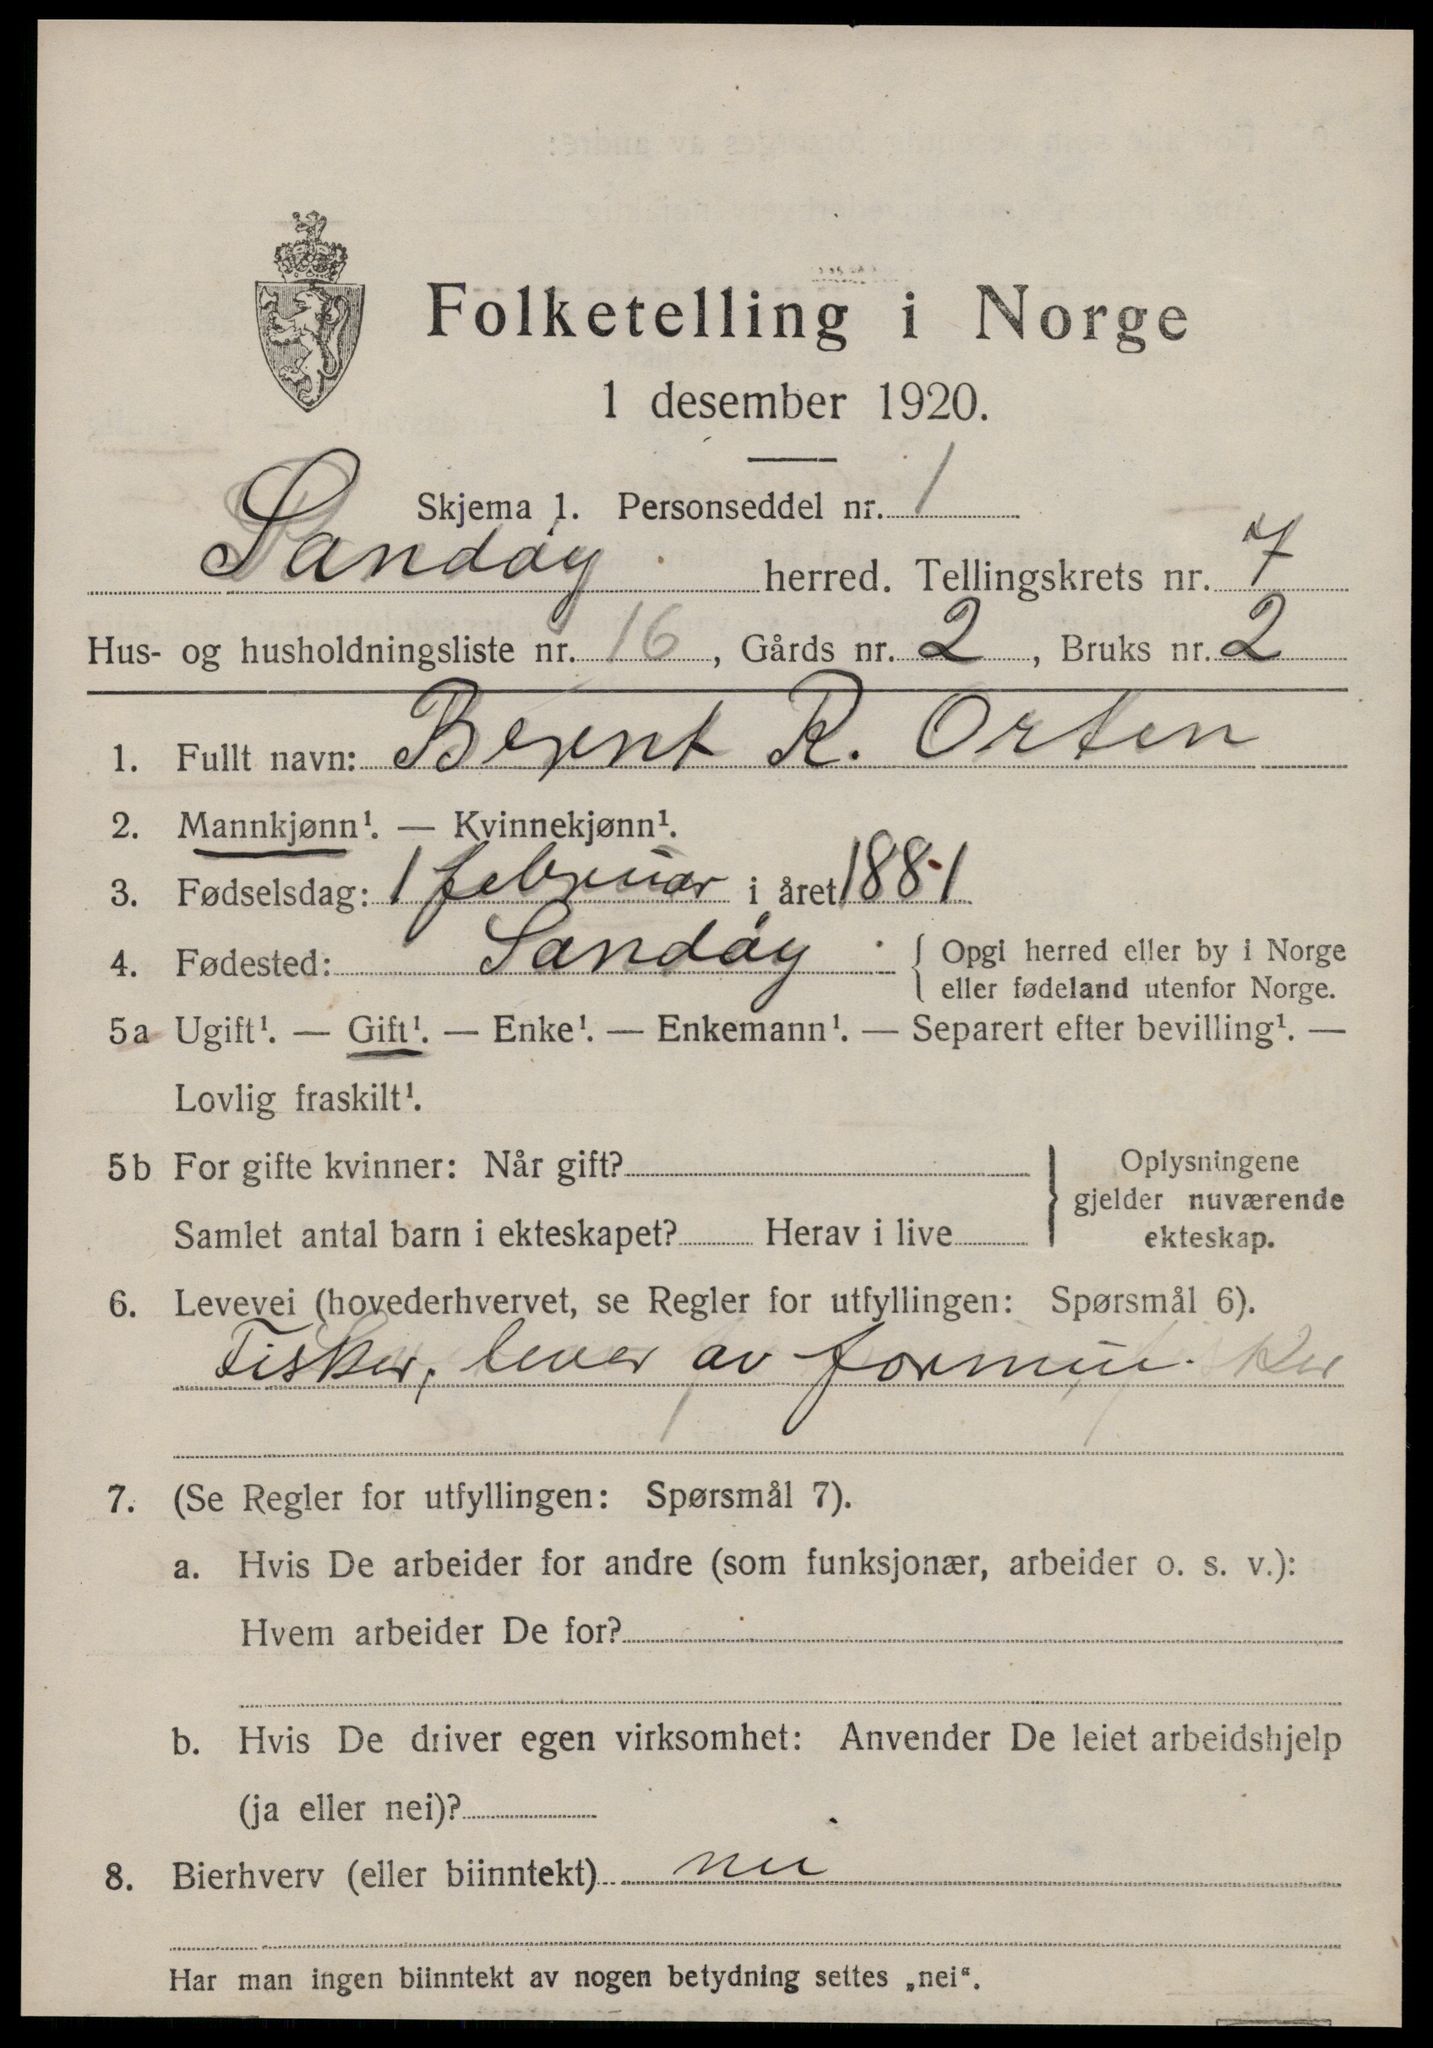 Folketelling i Norge
1 desember 1920.
Skjema 1. Personseddel nr. 1
Sandøy herred. Tellingskrets nr. 7
Hus- og husholdningsliste nr. 16, Gårds nr. 2, Bruks nr. 2
1. Fullt navn: Bernt R. Orten
2. Mannkjønn¹. — Kvinnekjønn¹.
3. Fødselsdag: 1 februar i året 1881
4. Fødested: Sandøy { Opgi herred eller by i Norge
eller fødeland utenfor Norge.
5a Ugift¹. — Gift¹. — Enke¹. — Enkemann¹. — Separert efter bevilling¹. —
Lovlig fraskilt¹.
5b For gifte kvinner: Når gift?
Samlet antal barn i ekteskapet? Herav i live
Oplysningene
gjelder nuværende
ekteskap.
6. Levevei (hovederhvervet, se Regler for utfyllingen: Spørsmål 6).
Fisker, lever av formue.
7. (Se Regler for utfyllingen: Spørsmål 7).
a. Hvis De arbeider for andre (som funksjonær, arbeider o. s. v.):
Hvem arbeider De for?
b. Hvis De driver egen virksomhet: Anvender De leiet arbeidshjelp
(ja eller nei)?
8. Bierhverv (eller biinntekt) nei
Har man ingen biinntekt av nogen betydning settes „nei“.